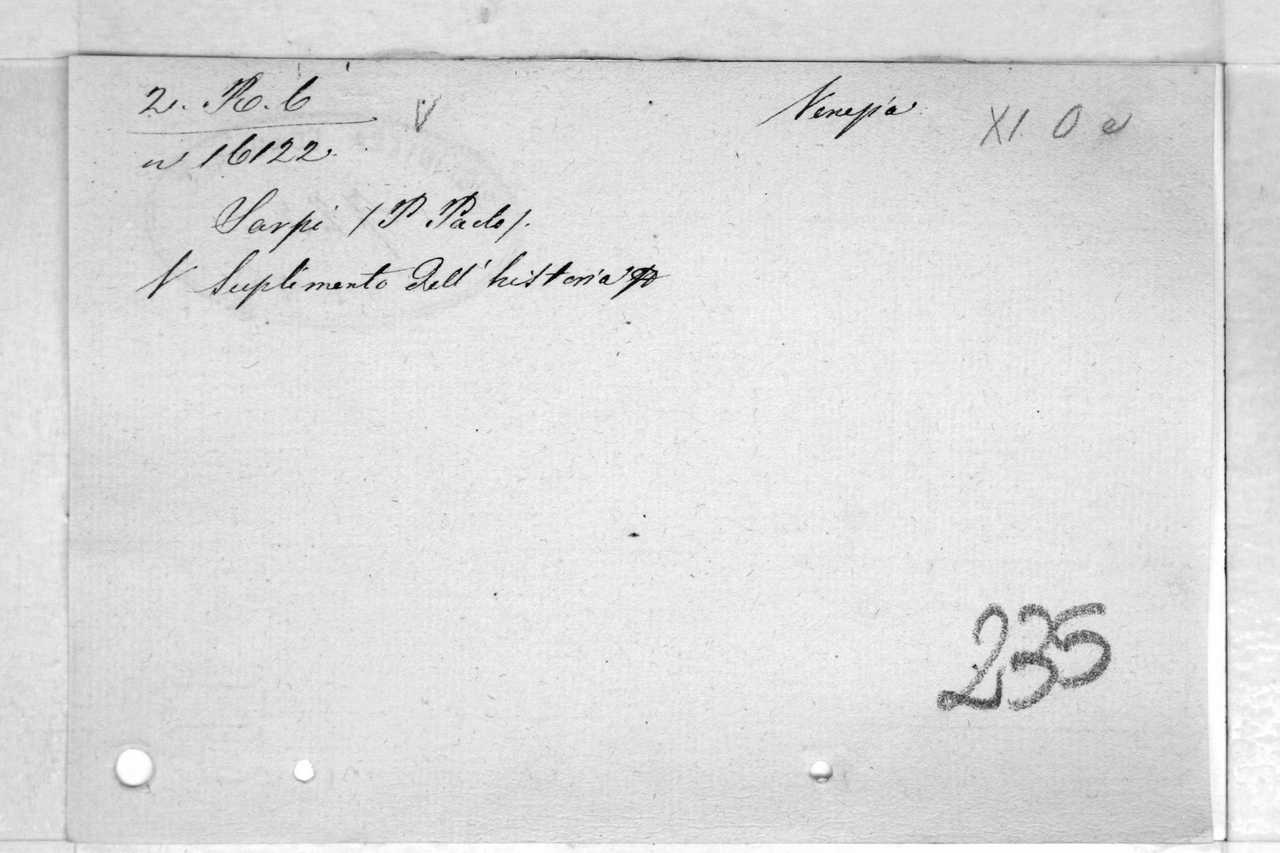 2. R. 6 V Venezia XI O e
n 16122.
Sarpi / P. Paolo /.
V Suplimento dell' historia
235